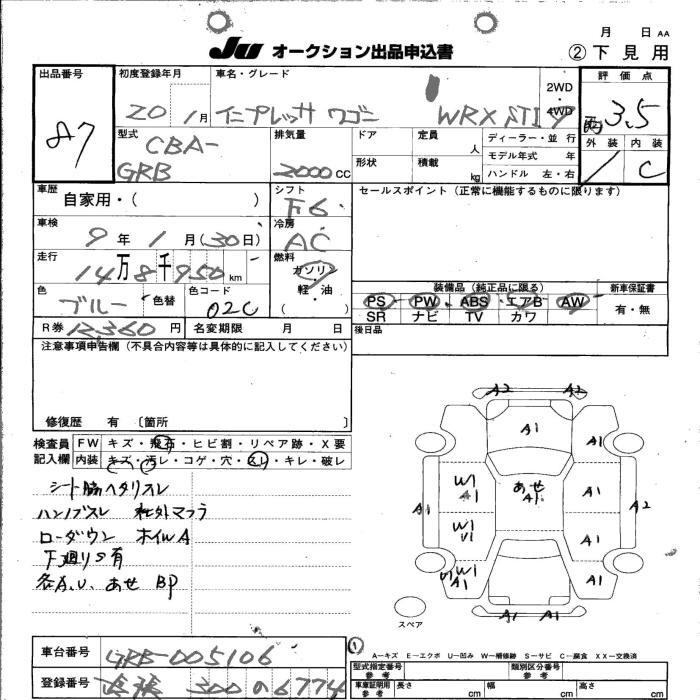 月 日 AA
JU オークション出品申込書 ②下見用
出品番号 初度登録年月 車名・グレード 2WD 4WD 評価点
87 20 1月 インプレッサ ワゴン WRX STI 3.5
型式 CBA-GRB
排気量 2000CC
ドア 定員 人
形状 積載 kg
ディーラー・並行
モデル年式 年
ハンドル 左・右
外装 内装
C
車歴 自家用・( )
シフト F6
セールスポイント (正常に機能するものに限ります)
車検 9年1月(30日)
冷房 AC
走行 14万8千950km
燃料 ガソリン 軽・油 ( )
色 ブルー 色替 色コード 02C
装備品 (純正品に限る) 新車保証書
PS PW ABS エアB AW 有・無
SR ナビ TV カワ
R券 12,360円 名変期限 月 日
後日品
注意事項申告欄 (不具合内容等は具体的に記入してください)
修復歴 有 〔箇所 〕
検査員記入欄
FW キズ・飛石・ヒビ割・リペア跡・X要
内装 キズ・汚レ・コゲ・穴・スレ・キレ・破レ
シート脇ヘタリスレ
ハンドルスレ 社外マフラ
ローダウン ホイルA
下廻りS有
各A.U. あせ BP
A2 A2
A1 A1
W1 A1 あせ A1 A1
A1 A2
W1 U1 A1
U1 W1 A1 A1
A1 A1
スペア
A-キズ E-エクボ U-凹み W-補修跡 S-サビ C-腐食 XX-交換済
車台番号 GRB-005106
①
型式指定番号 参考 類別区分番号 参考
登録番号 300 の 6774
車庫証明用 参考 長さ cm 幅 cm 高さ cm